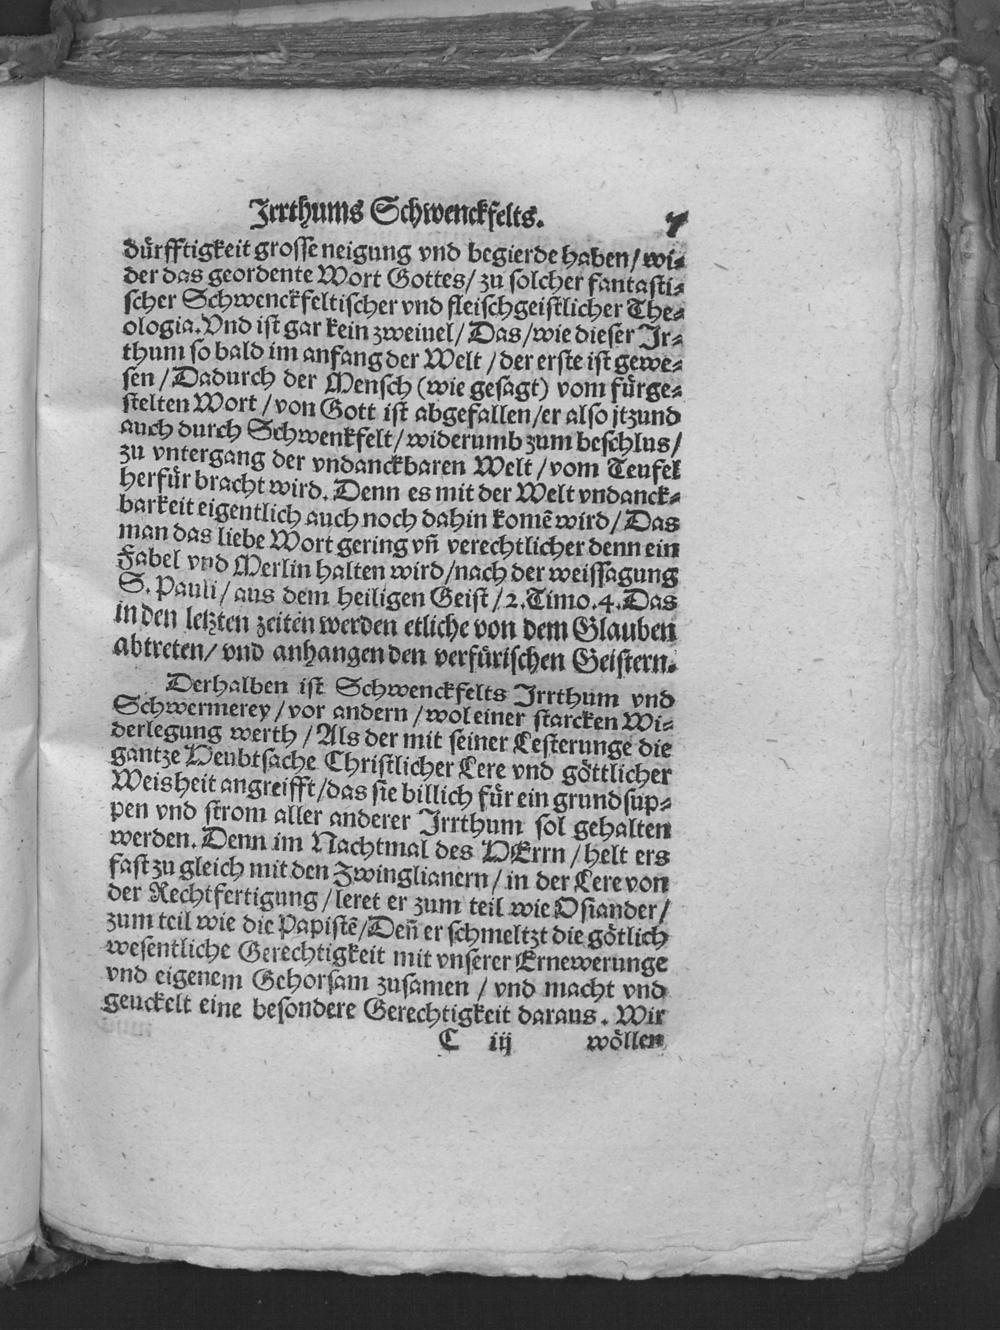 Irrthums Schwenckfelts. 7
dürfftigkeit grosse neigung vnd begierde haben / wi-
der das geordente Wort Gottes / zu solcher fantasti-
scher Schwenckfeltischer vnd fleischgeistlicher The-
ologia. Vnd ist gar kein zweiuel / Das / wie dieser Ir-
thum so bald im anfang der Welt / der erste ist gewe-
sen / Dadurch der Mensch (wie gesagt) vom fürge-
stelten Wort / von Gott ist abgefallen / er also jtzund
auch durch Schwenkfelt / widerumb zum beschlus /
zu vntergang der vndanckbaren Welt / vom Teufel
herfür bracht wird. Denn es mit der Welt vndanck-
barkeit eigentlich auch noch dahin komē wird / Das
man das liebe Wort gering vñ verechtlicher denn ein
Fabel vnd Merlin halten wird / nach der weissagung
S. Pauli / aus dem heiligen Geist / 2. Timo. 4. Das
in den letzten zeiten werden etliche von dem Glauben
abtreten / vnd anhangen den verfürischen Geistern.
Derhalben ist Schwenckfelts Irrthum vnd
Schwermerey / vor andern / wol einer starcken Wi-
derlegung werth / Als der mit seiner Lesterunge die
gantze Heubtsache Christlicher Lere vnd göttlicher
Weisheit angreifft / das sie billich für ein grundsup-
pen vnd strom aller anderer Irrthum sol gehalten
werden. Denn im Nachtmal des HErrn / helt ers
fast zu gleich mit den Zwinglianern / in der Lere von
der Rechtfertigung / leret er zum teil wie Osiander /
zum teil wie die Papistē / Deñ er schmeltzt die götlich
wesentliche Gerechtigkeit mit vnserer Ernewerunge
vnd eigenem Gehorsam zusamen / vnd macht vnd
geuckelt eine besondere Gerechtigkeit daraus. Wir
C iij wöllen